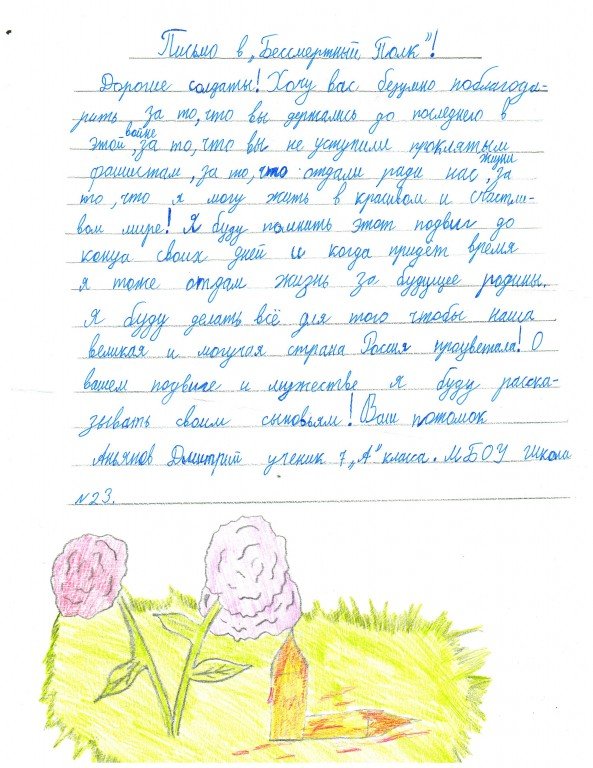 Письмо в „Бессмертный Полк"!
Дорогие солдаты! Хочу вас безумно поблагода-
рить за то, что вы держались до последнего в
этой войне, за то, что вы не уступили проклятым
фашистам, за то, что отдали ради нас жизни, за
то, что я могу жить в красивом и счастли-
вом мире! Я буду помнить этот подвиг до
конца своих дней и когда придет время
я тоже отдам жизнь за будущее родины.
Я буду делать всё для того чтобы наша
великая и могучая страна Россия процветала! О
вашем подвиге и мужестве я буду расска-
зывать своим сыновьям! Ваш потомок
Аньянов Дмитрий ученик 7 „А" класса. МБОУ Школа
№23.